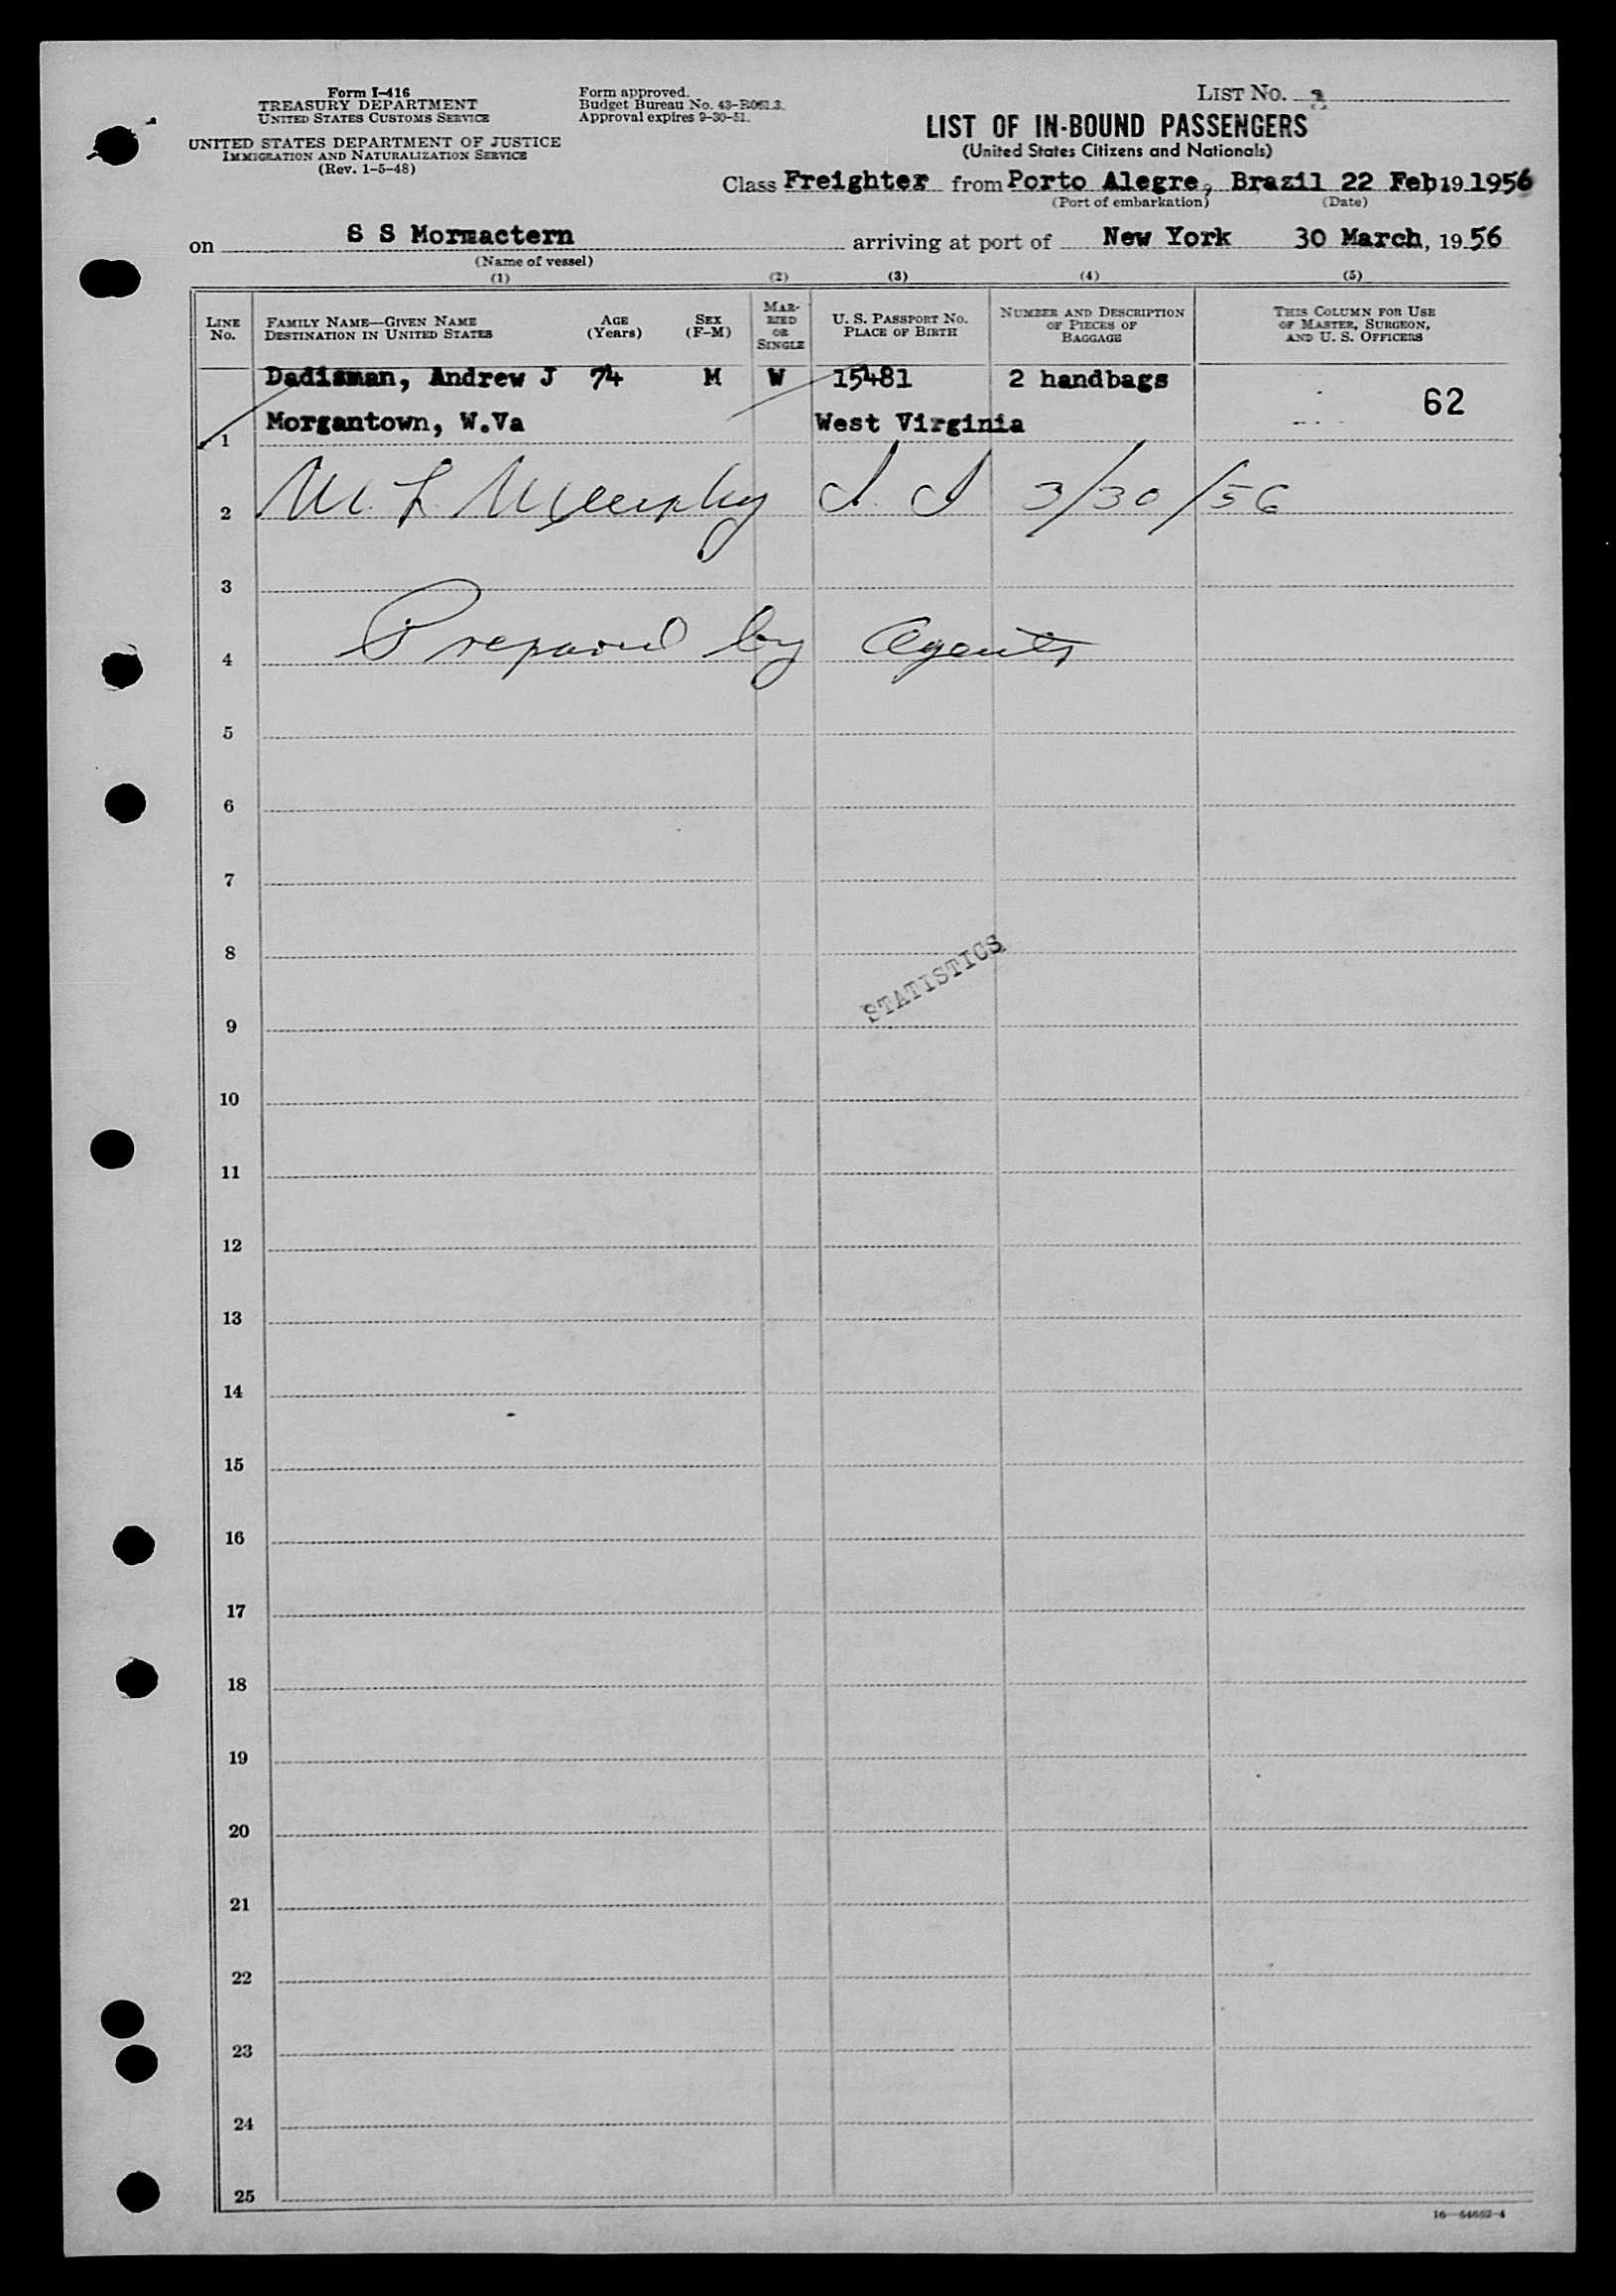 Form I-416
TREASURY DEPARTMENT
UNITED STATES CUSTOMS SERVICE
UNITED STATES DEPARTMENT OF JUSTICE
IMMIGRATION AND NATURALIZATION SERVICE
(Rev. 1-5-48)
Form approved.
Budget Bureau No.
Approval expires 9-30-51.
LIST No.
LIST OF IN-BOUND PASSENGERS
(United States Citizens and Nationals)
Class Freighter from Porto Alegre, Brazil 22 Feb, 19 1956
(Port of embarkation) (Date)
on S S Mormactern arriving at port of New York 30 March, 19 56
(Name of vessel)
(1) (2) (3) (4) (5)
LINE No. FAMILY NAME—GIVEN NAME DESTINATION IN UNITED STATES AGE (Years) SEX (F-M) MARRIED OR SINGLE U. S. PASSPORT No. PLACE OF BIRTH NUMBER AND DESCRIPTION OF PIECES OF BAGGAGE THIS COLUMN FOR USE OF MASTER, SURGEON, AND U. S. OFFICERS
Dadisman, Andrew J 74 M W 15481 2 handbags 62
1 Morgantown, W.Va West Virginia
2 M. L. Murphy I. I 3/30/56
3
4 Prepared by Agents
5
6
7
8
STATISTICS
9
10
11
12
13
14
15
16
17
18
19
20
21
22
23
24
25